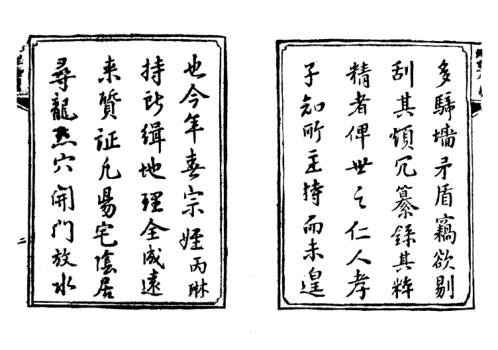 多騎墻矛盾竊欲剔
刮其煩冗纂錄其粹
精者俾世之仁人孝
子知所主持而未遑
也今年喜宗姪丙琳
持所緝地理全成遠
来質証凡昜宅陰居
尋龍点穴開門放水
二